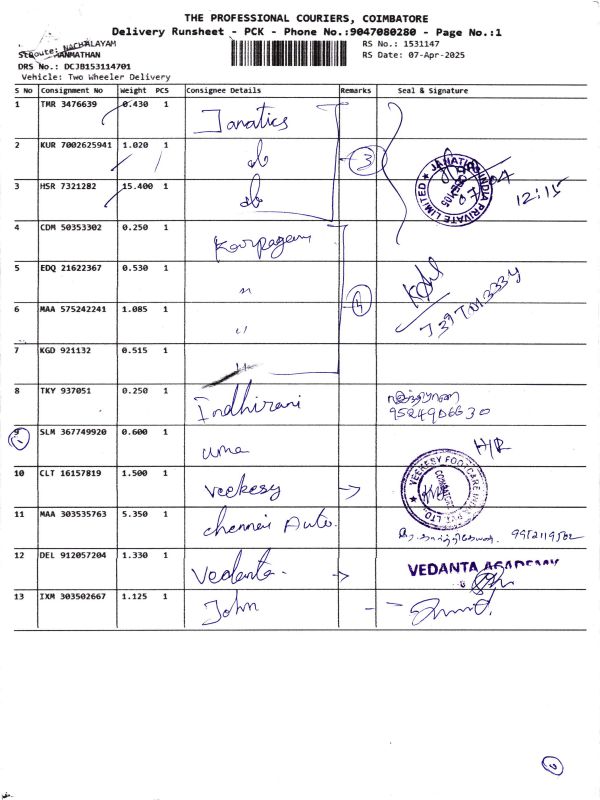 THE PROFESSIONAL COURIERS, COIMBATORE
Delivery Runsheet - PCK - Phone No.:9047080280 - Page No.:1
NACHALAYAM
RS No.: 1531147
RS Date: 07-Apr-2025
DRS No.: DCJB153114701
Vehicle: Two Wheeler Delivery
S No Consignment No Weight PCS Consignee Details Remarks Seal & Signature
1 TMR 3476639 0.430 1 Janatics
2 KUR 7002625941 1.020 1 do 3
3 HSR 7321282 15.400 1 do
JANATICS INDIA PRIVATE LIMITED
12:15
4 CDM 50353302 0.250 1 Karpagam
5 EDQ 21622367 0.530 1 "
6 MAA 575242241 1.085 1 " 4
7 KGD 921132 0.515 1 "
8 TKY 937051 0.250 1 Indhirani
9524906630
9 SLM 367749920 0.600 1 uma
H/R
10 CLT 16157819 1.500 1 Veekesy →
VEEKESY FOOTCARE INDIA PVT LTD.
11 MAA 303535763 5.350 1 chennai Auto.
12 DEL 912057204 1.330 1 Vedanta. → VEDANTA ACADEMY
13 IXM 303502667 1.125 1 John